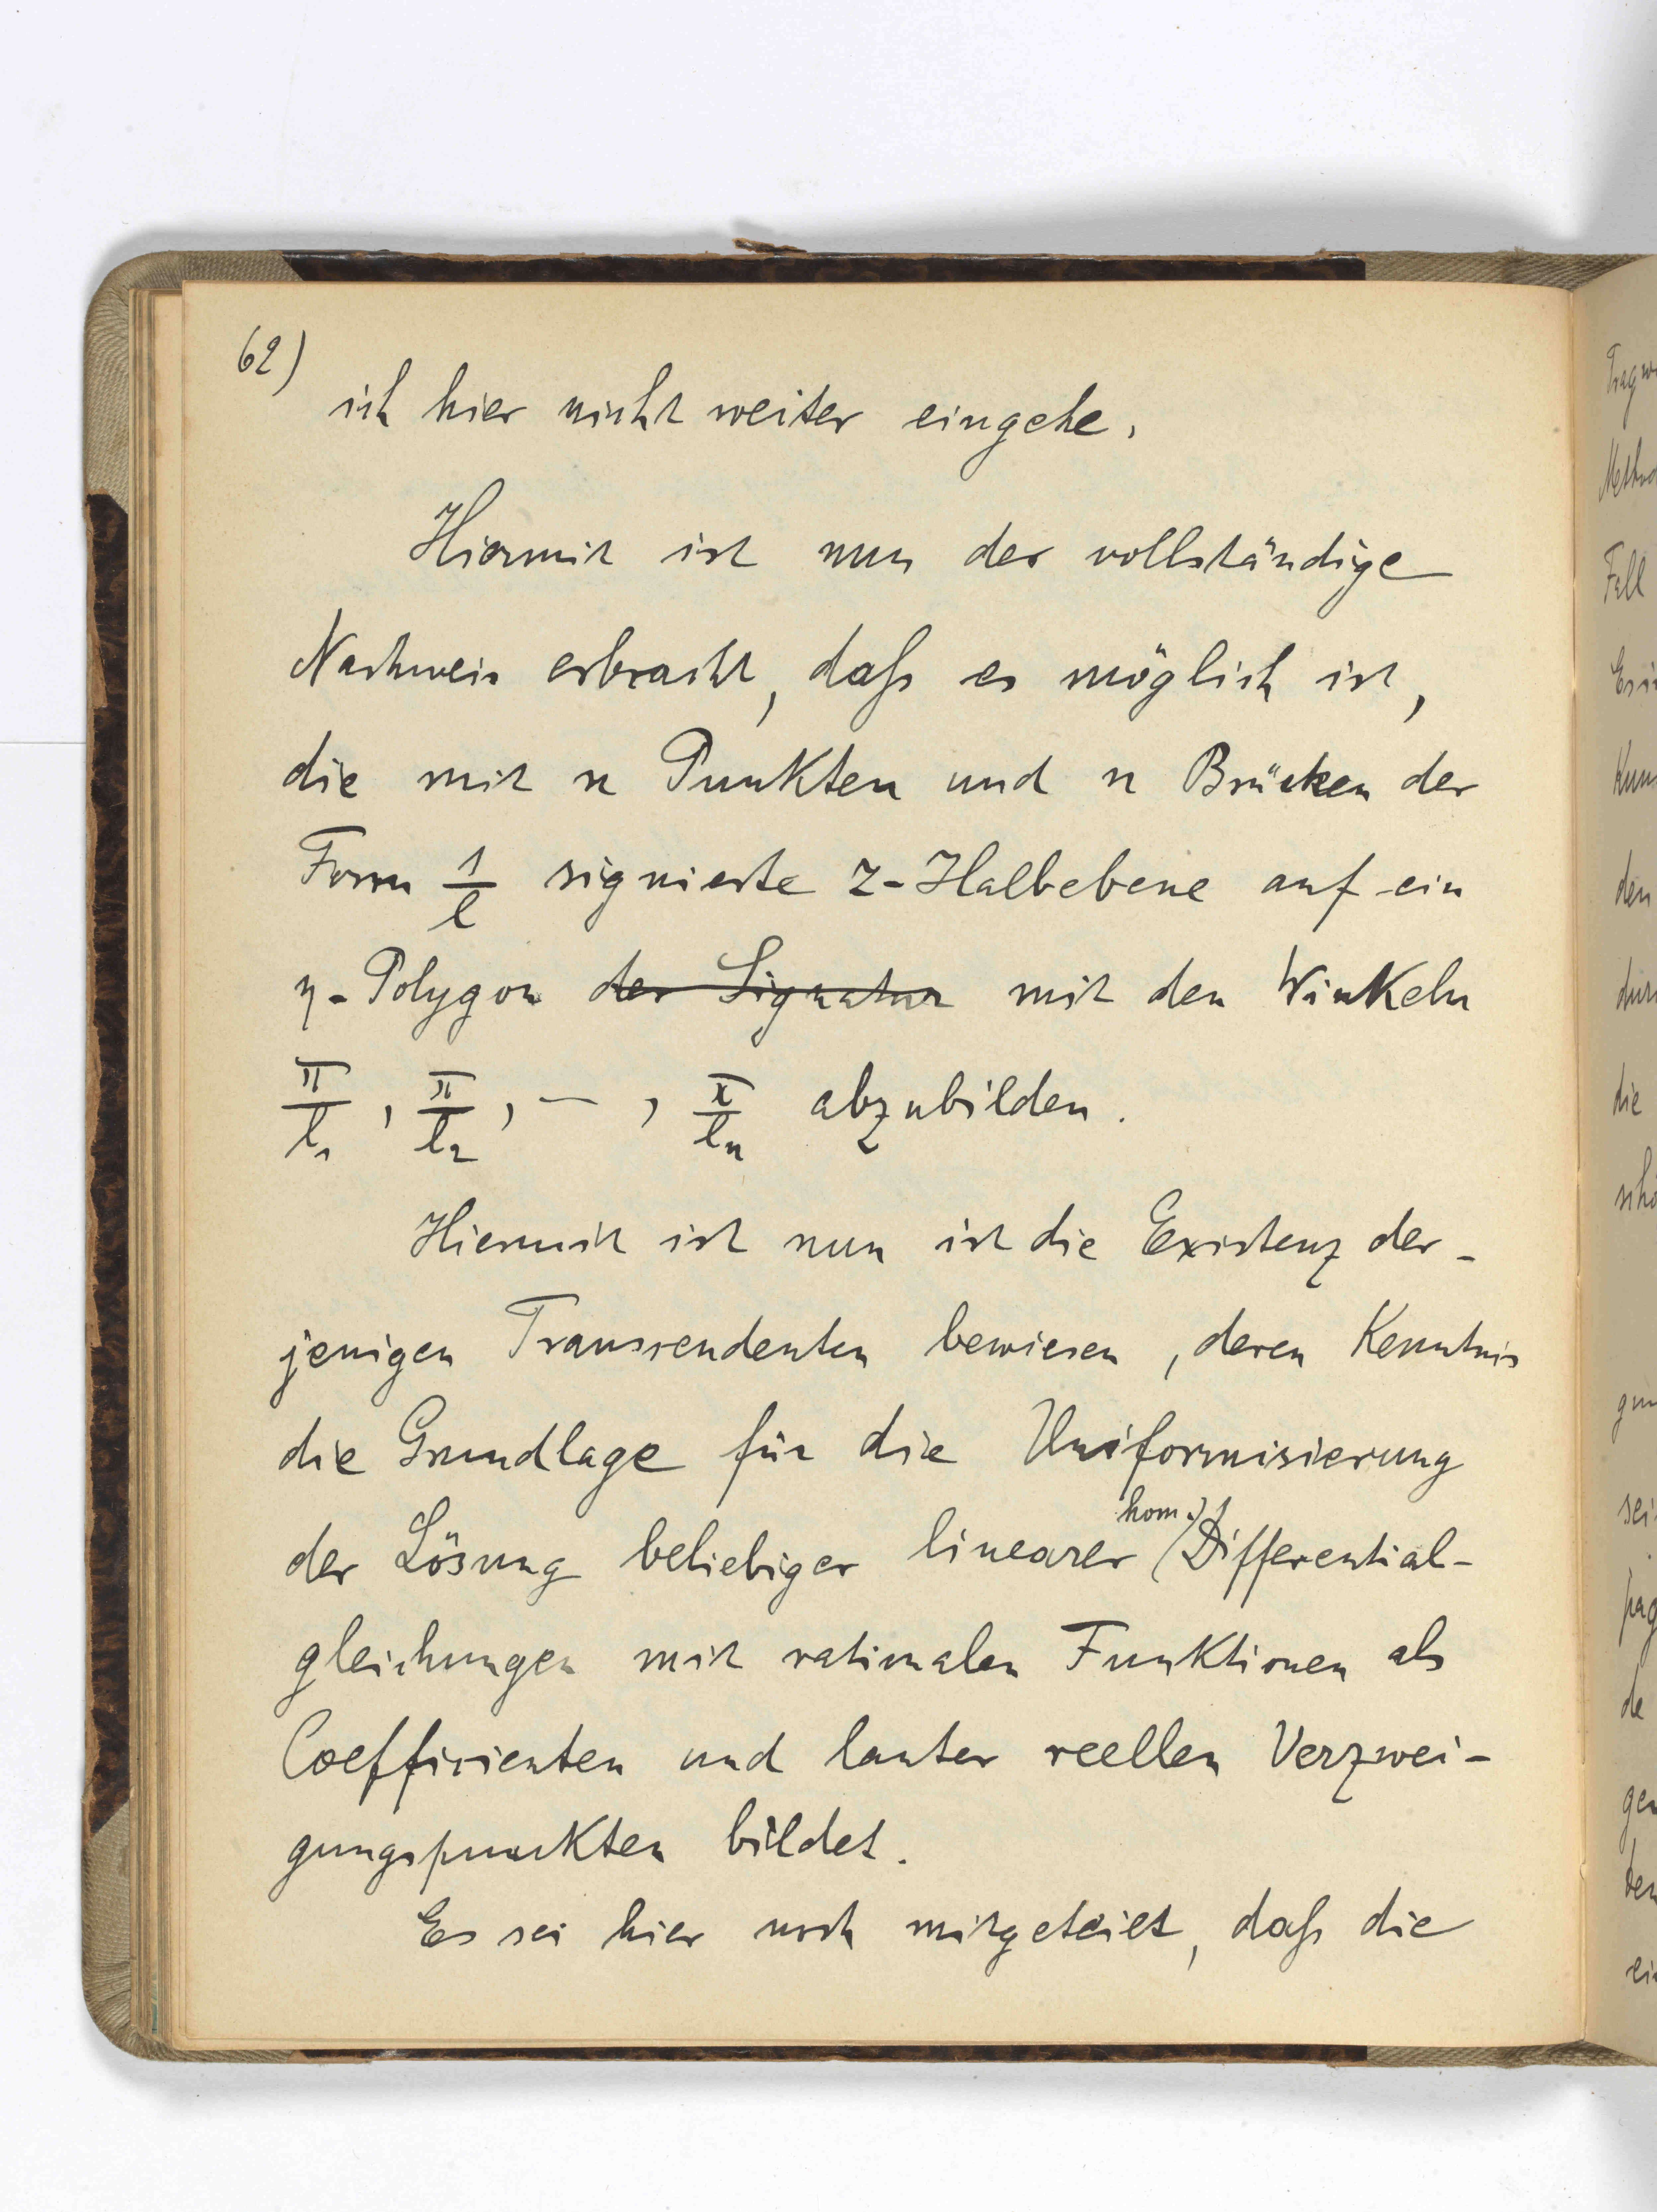 62)
ich hier nicht weiter eingehe.
Hiermit ist nun der vollständige
Nachweis erbracht, daß es möglich ist,
die mit n Punkten und n Brücken der
Form 1/l signierte z-Halbebene auf ein
η-Polygon der Signatur mit den Winkeln
π/l₁, π/l₂, — , π/lₙ abzubilden.
Hiermit ist nun ist die Existenz der-
jenigen Transcendenten bewiesen, deren Kenntnis
die Grundlage für die Uniformisierung
hom.
der Lösung beliebiger linearer Differential-
gleichungen mit rationalen Funktionen als
Coefficienten und lauter reellen Verzwei-
gungspunkten bildet.
Es sei hier noch mitgeteilt, daß die
Fall
den
die